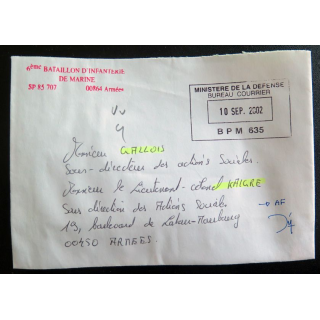 6ème BATAILLON D'INFANTERIE
DE MARINE
SP 85 707 00864 Armées
MINISTERE DE LA DEFENSE
BUREAU COURRIER
10 SEP. 2002
B P M 635
Monsieur GALLOIS
Sous-directeur des actions Sociales.
Monsieur le Lieutenant-colonel KAIGRE
Sous direction des Actions Sociales
→ AF
19, boulevard de Latour-Maubourg
00450 ARMEES